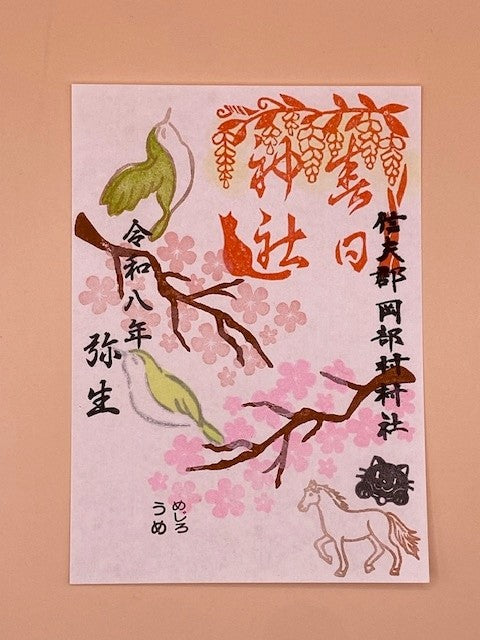 春日
神社
信夫郡岡部村村社
令和八年
弥生
めじろ
うめ